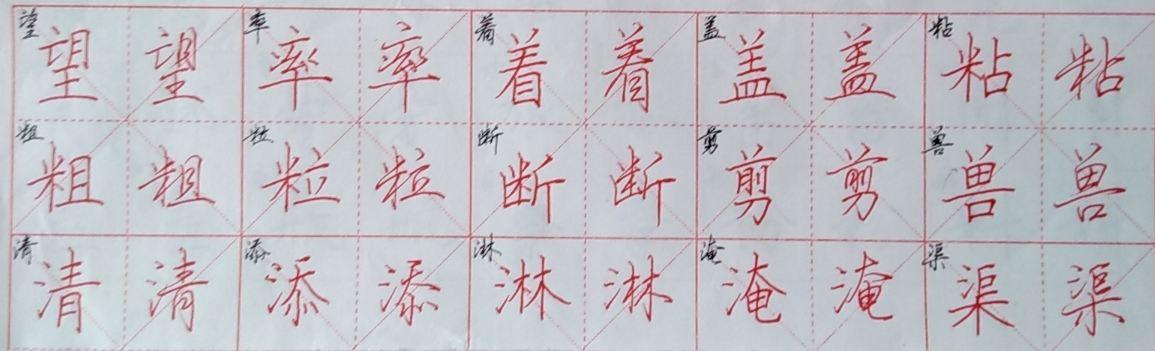 望 望 望 率 率 率 着 着 着 盖 盖 盖 粘 粘 粘
粗 粗 粗 粒 粒 粒 断 断 断 剪 剪 剪 兽 兽 兽
清 清 清 添 添 添 淋 淋 淋 淹 淹 淹 渠 渠 渠